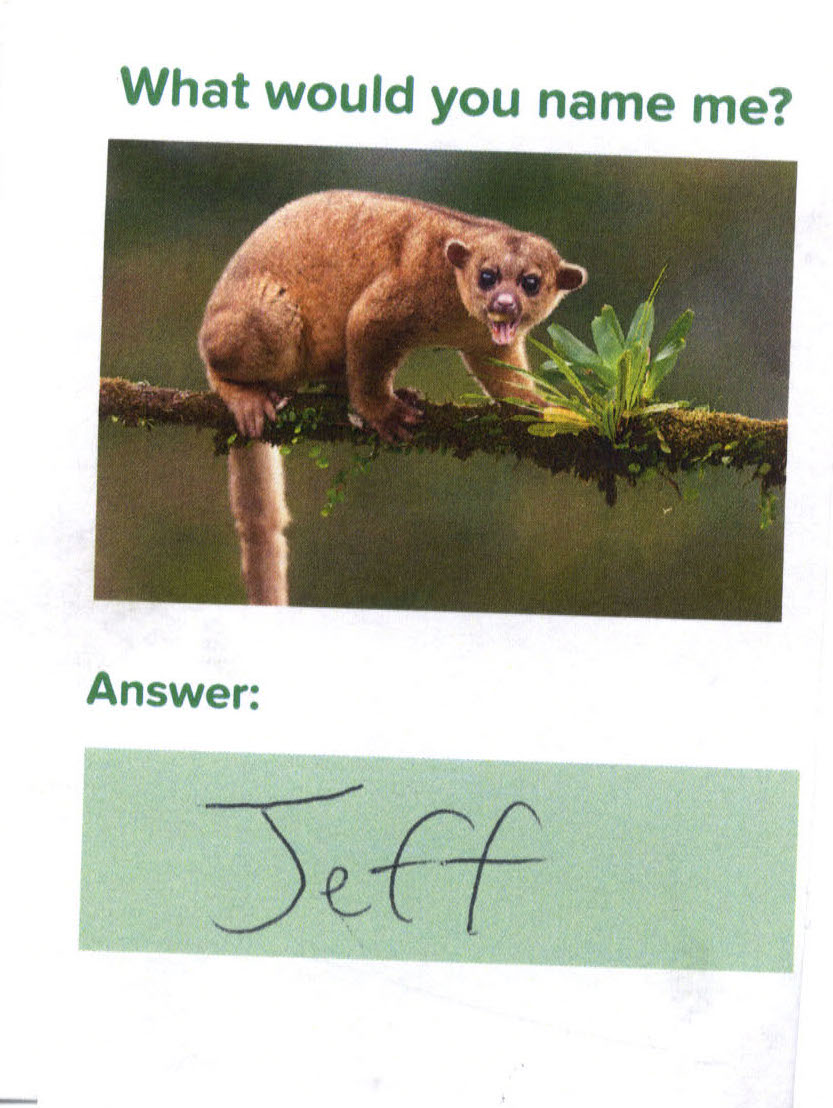 What would you name me?
Answer:
Jeff